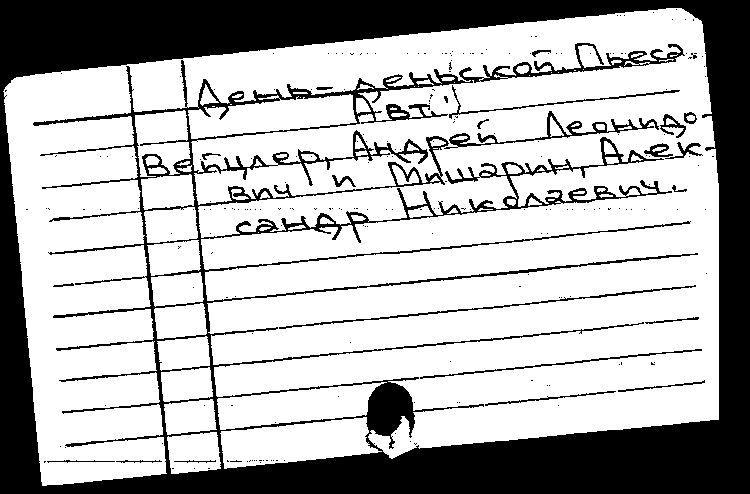 День-деньской. Пьеса.
Авт.:
Вейцлер, Андрей Леонидо-
вич и Мишарин, Алек-
сандр Николаевич.